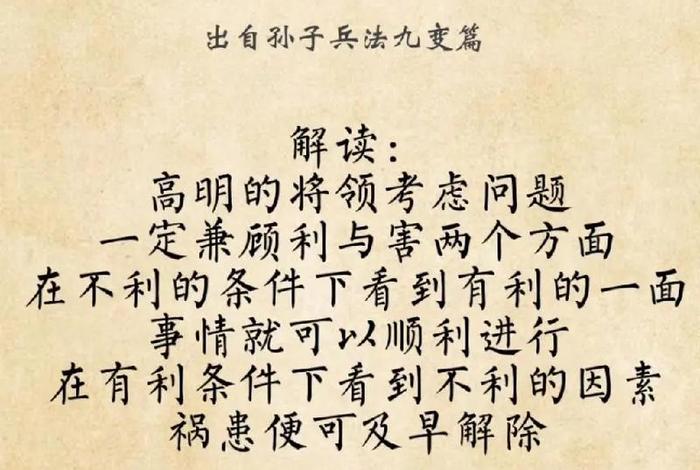 出自孙子兵法九变篇
解读：
高明的将领考虑问题
一定兼顾利与害两个方面
在不利的条件下看到有利的一面
事情就可以顺利进行
在有利条件下看到不利的因素
祸患便可及早解除